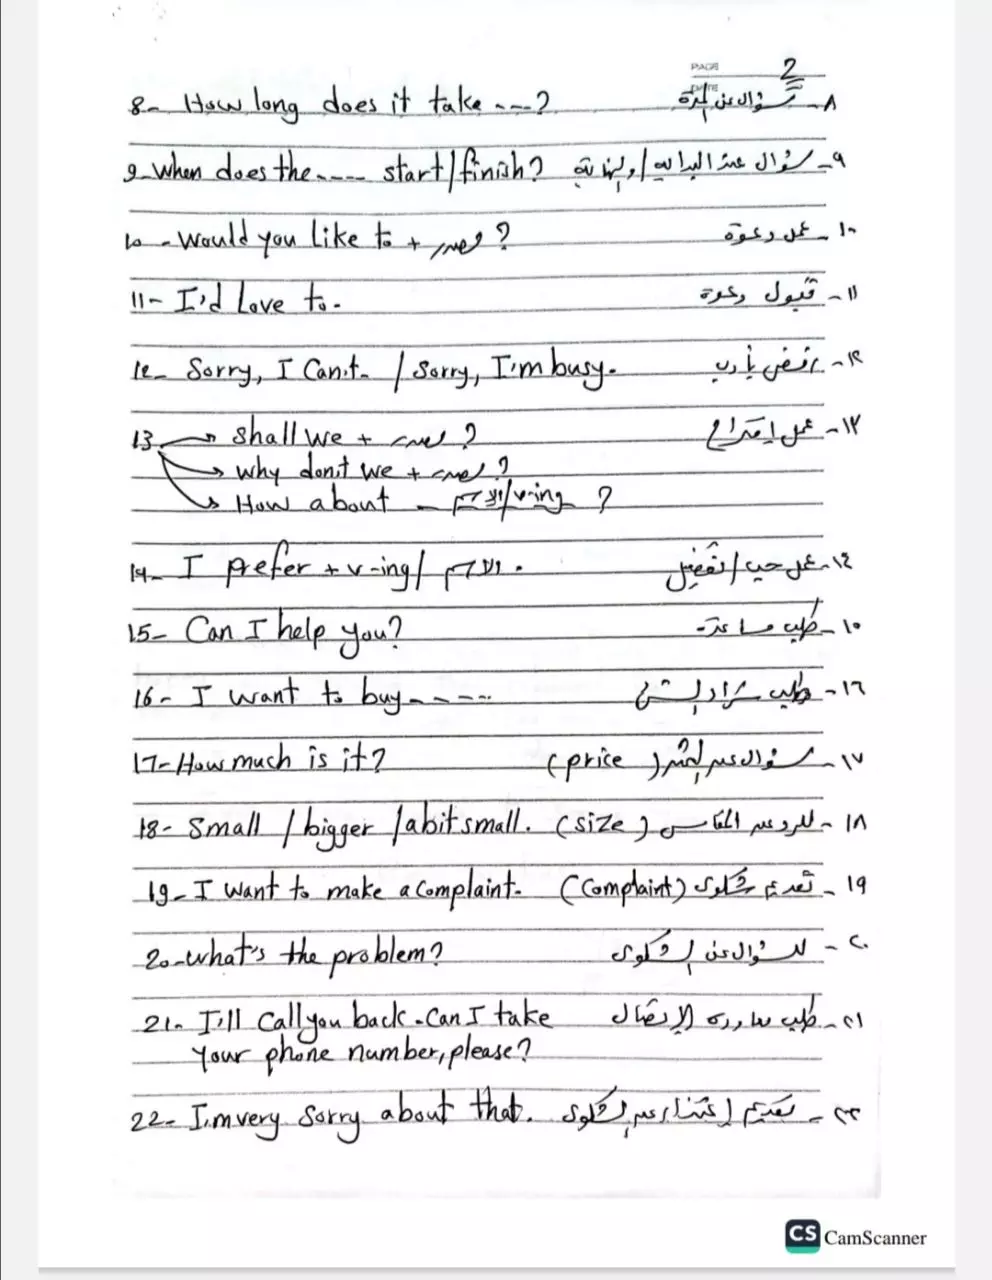 PAGE 2
8- How long does it take ---? ٨- سؤال عن المدة
9- When does the---- start/finish? ٩- سؤال عند البداية/والنهاية
10- Would you like to + مصدر ? ١٠- عمل دعوة
11- I'd Love to. ١١- قبول دعوة
12- Sorry, I Can't. / Sorry, I'm busy. ١٢- رفض بأدب
13 → Shall we + مصدر ? ١٣- عمل اقتراح
→ why don't we + مصدر ?
→ How about - الاسم/v-ing ?
14- I prefer + v-ing/ الاسم . ١٤- عن حب/تفضيل
15- Can I help you? ١٥- طلب مساعدة
16- I want to buy----- ١٦- طلب شراء
17- How much is it? (price) ١٧- سؤال عن السعر
18- Small / bigger / a bit small. (size) ١٨- للرد عن المقاس
19- I want to make a complaint. (Complaint) ١٩- تقديم شكوى
20- what's the problem? ٢٠- للسؤال عن الشكوى
21- I'll Call you back. Can I take ٢١- طلب معاودة الإتصال
your phone number, please?
22- I'm very sorry about that. ٢٢- تقديم إعتذار عن الشكوى
CS CamScanner